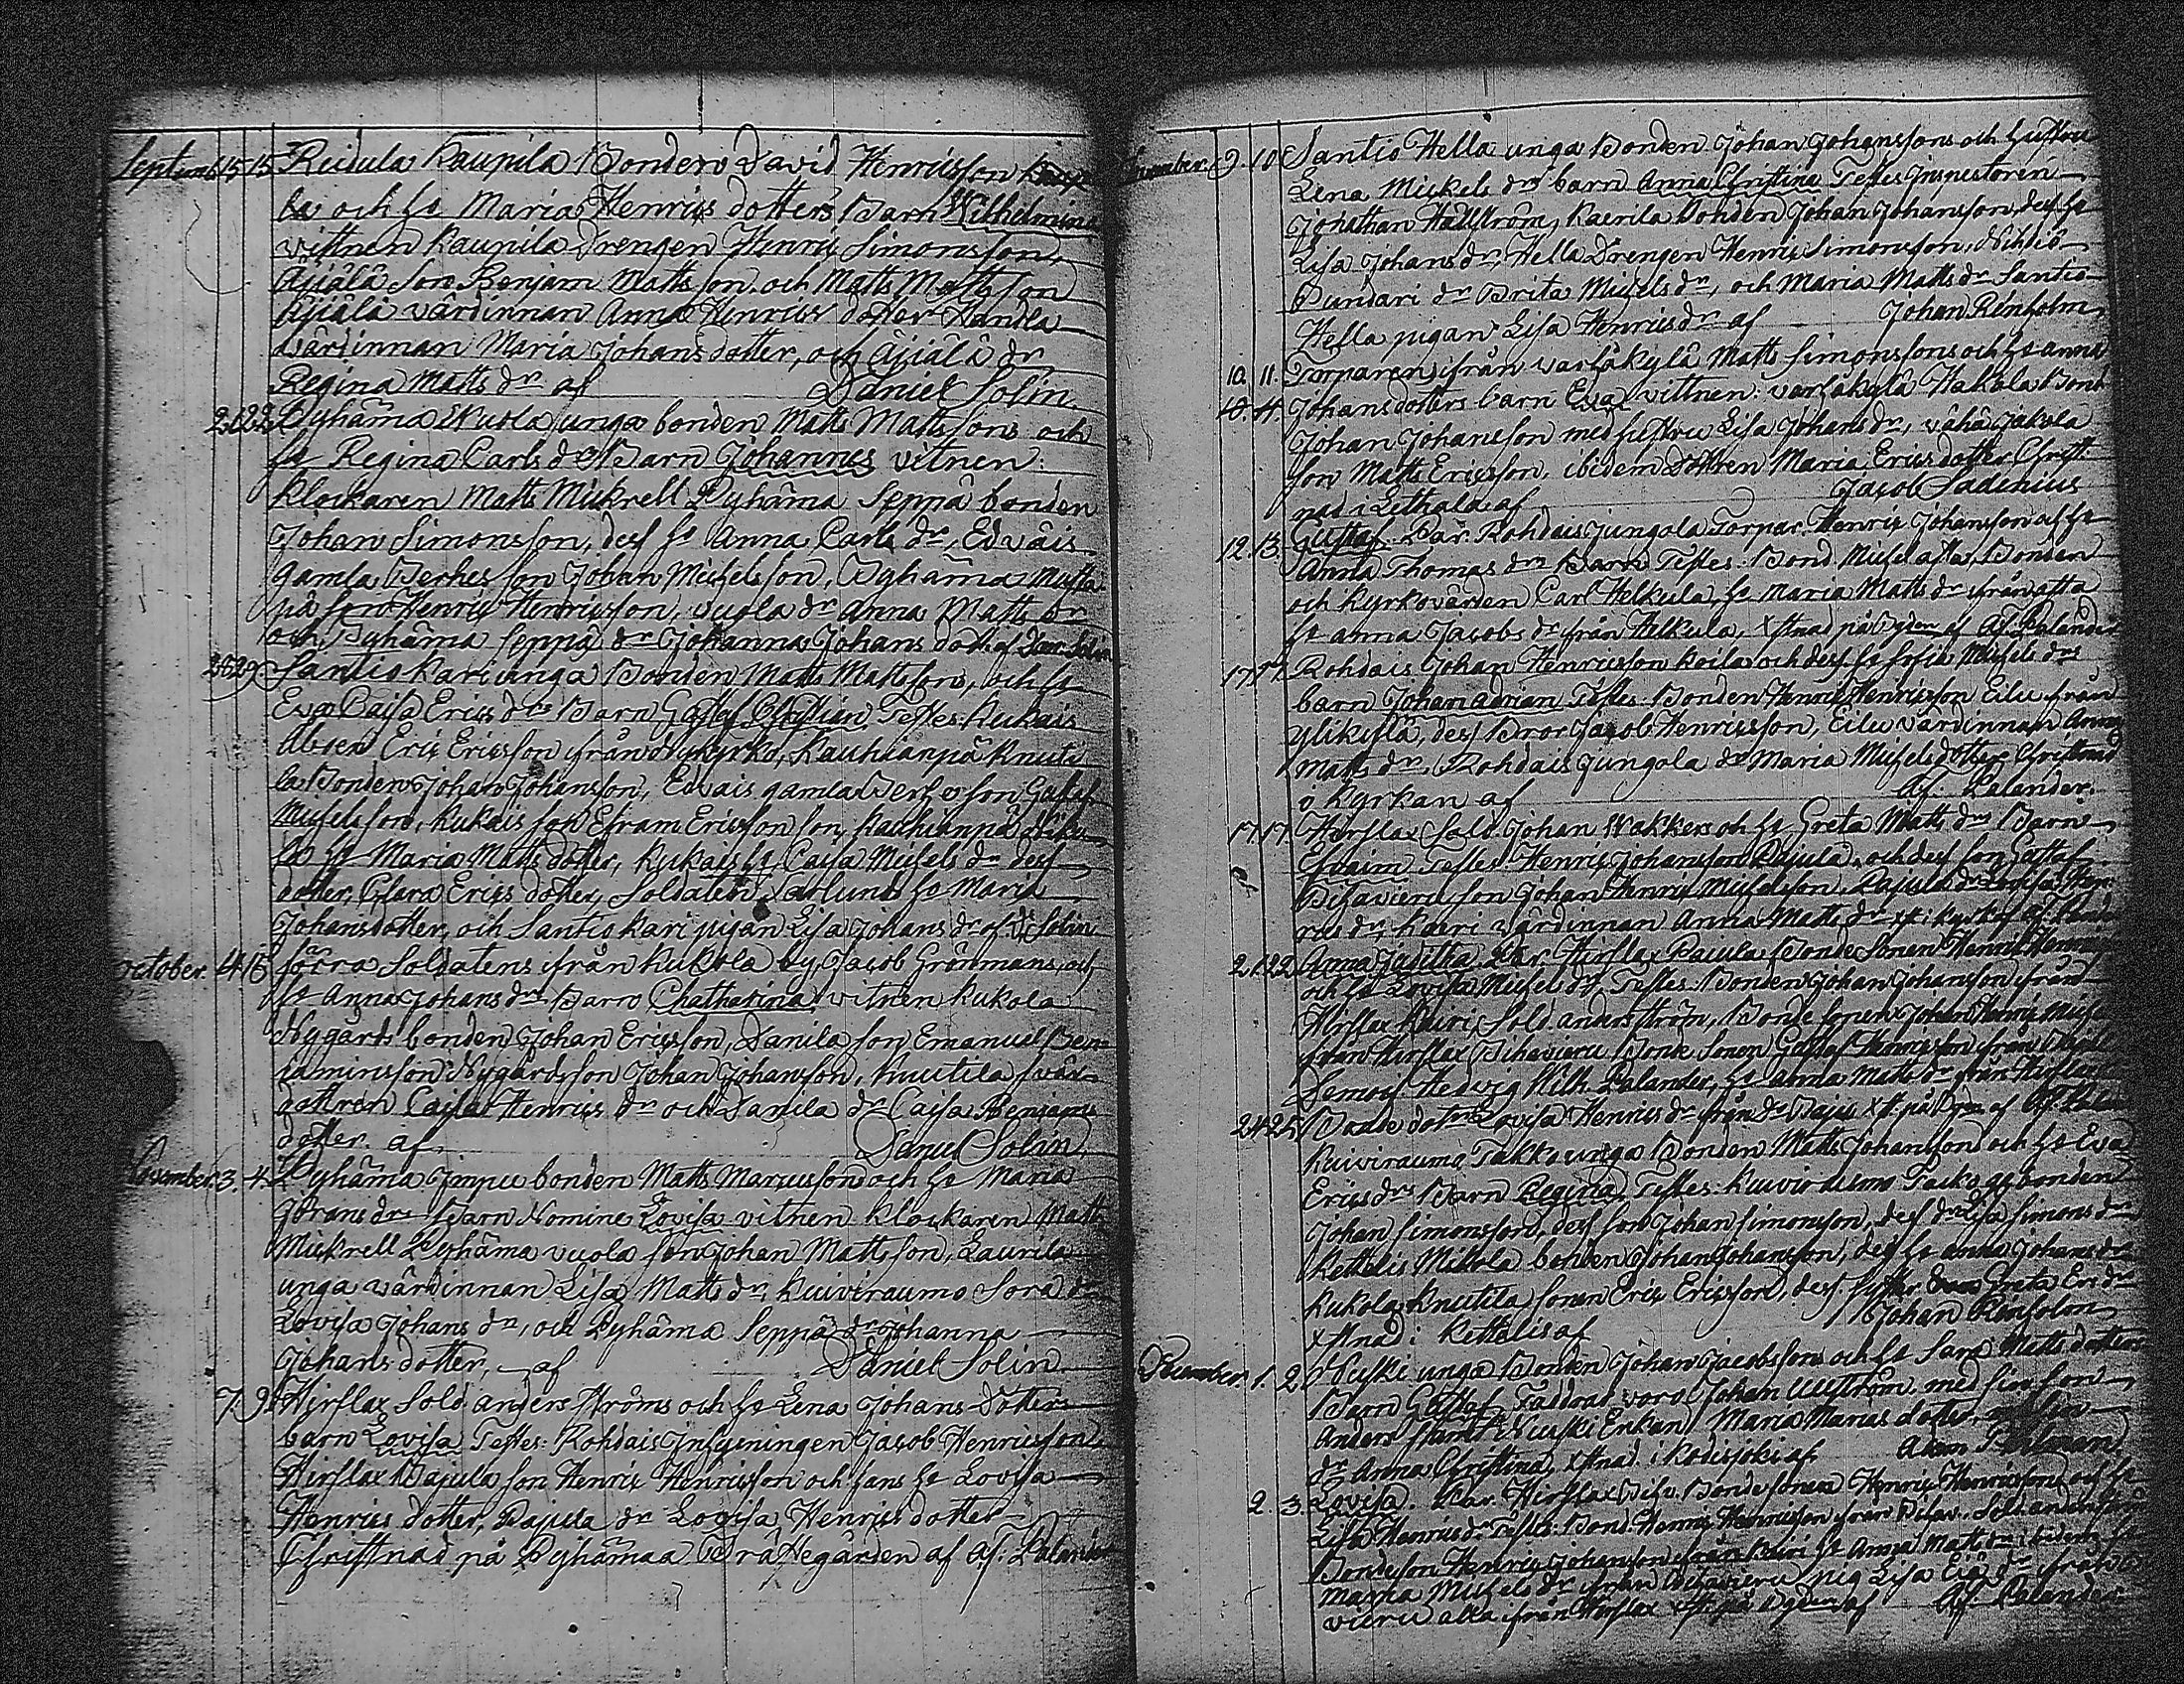 Septemb. 15 15 Reidula Kaupila Bonden David Henricsson
la och h: Maria Henrics dotters Barn Wilhelmina
vittnen Kaupila Drengen Henric Simonsson,
Äijälä Son Benjam Mattsson och Matts Mattsson
Äijälä värdinnan Anna Henrics dotter
värdinnan Maria Johans dotter, och Äijälä dr
Regina Matts dr af Daniel Solin.
Pyhäma Wuola unga bonden Matts Mattssons och
h: Regina Carls drs Barn Johannes vitnen:
Klockaren Matts Mickrell Pyhäma Seppä bonden
Johan Simonsson, dess h: Anna Carls dr, Edväis
gamla Perhes son Johan Michelsson, Pyhäma
på son Henric Henricsson, Wuola dr Anna Matts dr
och Pyhäma Seppä dr Johanna Johans dott. af Dan: Solin
Santio Kari unga Bonden Matts Mattssons, och h:
Eva Caisa Erics drs Barn Gustaf Christian Testes: Kukais
Åboen Eric Ericsson ifrån Nykyrko, Kauhianpä Knuti
la Bonden Johan Johansson, Edvais gamla Perhe son Gustaf
Michelsson, Kukais son Efram Ericsson son, Kauhianpä
h: Maria Matts dotter, Kukais h: Caisa Michels dr dess
dotter, Clara Erics dotter, Soldaten h: Maria
Johansdotter, och Santio Kari pigan Lisa Johans dr af D: Solin
October. 14 15 förra Soldatens ifrån Kukola by, Jacob Grönmans, och
h: Anna Johans drs Barn Chatharina vitnen Kukola
Nygårds bonden Johan Ericsson, Danila son Emanuel Ben-
jaminsson Nygårds son Johan Johansson, Knutila svär
dottren Caisa Henrics dr och Danila dr Caisa Benjams
dotter. af Daniel Solin
November. 3. 4. Pyhäma Jimpu bonden Matts Marcussons och h: Maria
Görans drs Barn Nomine Lovisa vitnen Klockaren Matts
Mickrell Pyhäma Wuola son Johan Mattsson, Laurila
unga värdinnan Lisa Matts dr, Kuiviraumo Sora dr
Lovisa Johans dr, och Pyhäma Seppä dr Johanna
Johans dotter, af Daniel Solin
7. 9. Hirslax Sold. Anders Ströms och h: Lena Johans dotters
barn Lovisa Testes: Rohdais Inhysningen Jacob Henricsson,
Hirslax Pajula son Henric Henricsson och hans h: Lovisa
Henrics dotter, Pajula dr Lovisa Henrics dotter
Christnad på Pyhämaa Prästegården af Af: Palander
November. 9. 10 Santio Hella unga Bonden Johan Johanssons och hustru
Lena Mickels drs barn Anna Christina Testes Inspectoren
Jonathan Hallström, Kaerila Bonden Johan Johansson, dess h:
Lisa Johans dr, Hella Drengen Henric Simonsson,
Pundari dr Brita Michels dr, och Maria Matts dr Santio
Hella pigan Lisa Henrics dr af Johan Renholm
10. 11. Torparens ifrån Varhäkylä Matts Simonssons och h: Anna
Johansdotters barn Eva vittnen: Varhäkylä Hakala Bond
Johan Johansson med hustru Lisa Johans dr, Vähä Jakola
son Matts Ericsson, ibidem Dottren Maria Ericsdotter Christ-
nad i Letthala af Jacob Sadenius
12. 13. Gustaf. Par. Rohdais Jungola Torpar. Henric Johansson och h:
Anna Thomas drs Barn Testes: Bond. Michel Atta, Bonden
och Kyrkovärden Carl Helkula, h: Maria Matts dr ifrån Atta
h: Anna Jacobs dr från Helkula, Xstnad på Pyhm af Af Palander
17. 17. Rohdais Johan Henricsson Koila och dess h: Sofia Michels drs
barn Johan Adrian Testes: Bonden Henric Henricsson Eilu från
Ylikylä, dess Bror Jacob Henricsson, Eilu värdinnan Anna
Matts dr, Rohdais Jungola dr Maria Michelsdotter Christnad
i Kyrkan af Af: Palander.
17. 17. Hirslax Sold. Johan Wakkers och h: Greta Matts drs Barn
Efraim Testes Henric Johansson Pajula, och dess son Gustaf
son Johan Henric Michelsson, Pajula dr Lovisa Hen
rics dr, Kaeri värdinnan Anna Matts dr
21. 22 Anna Juditha. Par. Hirslax Pajula Bonde Sonen Henric Henric
och h: Lovisa Michels dr, Testes: Bonden Johan Johansson ifrån
Hirslax Kaeri, Sold. Anders Ström, Bonde sonen Johan Henric
ifrån Hirslax Bonde Sonen Gustaf Henricsson ifrån
Demois. Hedvig Wilh. Palander, h: Anna Matts dr från Hirslax
24 25 Bonde dot. Lovisa Henrics dr från
Kuiviraumo Takko unga Bonden Matts Johansson och h: Eva
Erics drs Barn Regina, Testes: Kuiviraumo Takko bonden
Johan Simonsson, dess son Johan Simonsson, dess dr Lisa Simons dr
Kettelis Mikola bonden Johan Johansson, dess h: Anna Johans dr
Kukola Knutila sonen Eric Ericsson, dess Greta Eri dr
xstnad i Kettelis af Johan Renholm
December. 1. 2. Nuski unga Bonden Johan Jacobssons och h: Sara Matts dotters
Barn Gustaf. Faddrar voro Johan med sin son
Anders samt Nuski Enkan Maria Marias dotter,
dr Anna Christina, xstnad. i Kodisjoki af
2. 3 Lovisa. Par. Hirslax Bonde sonen Henric Henricssons och h:
Lisa Henrics dr Testes: Bond. Henric Henricsson ifrån
Bondeson Henric Johansson ifrån Kaeri h: Anna Matts dr ibidem
Maria Michels dr ifrån pig Lisa
alla ifrån Hirslax af Af: Palander.